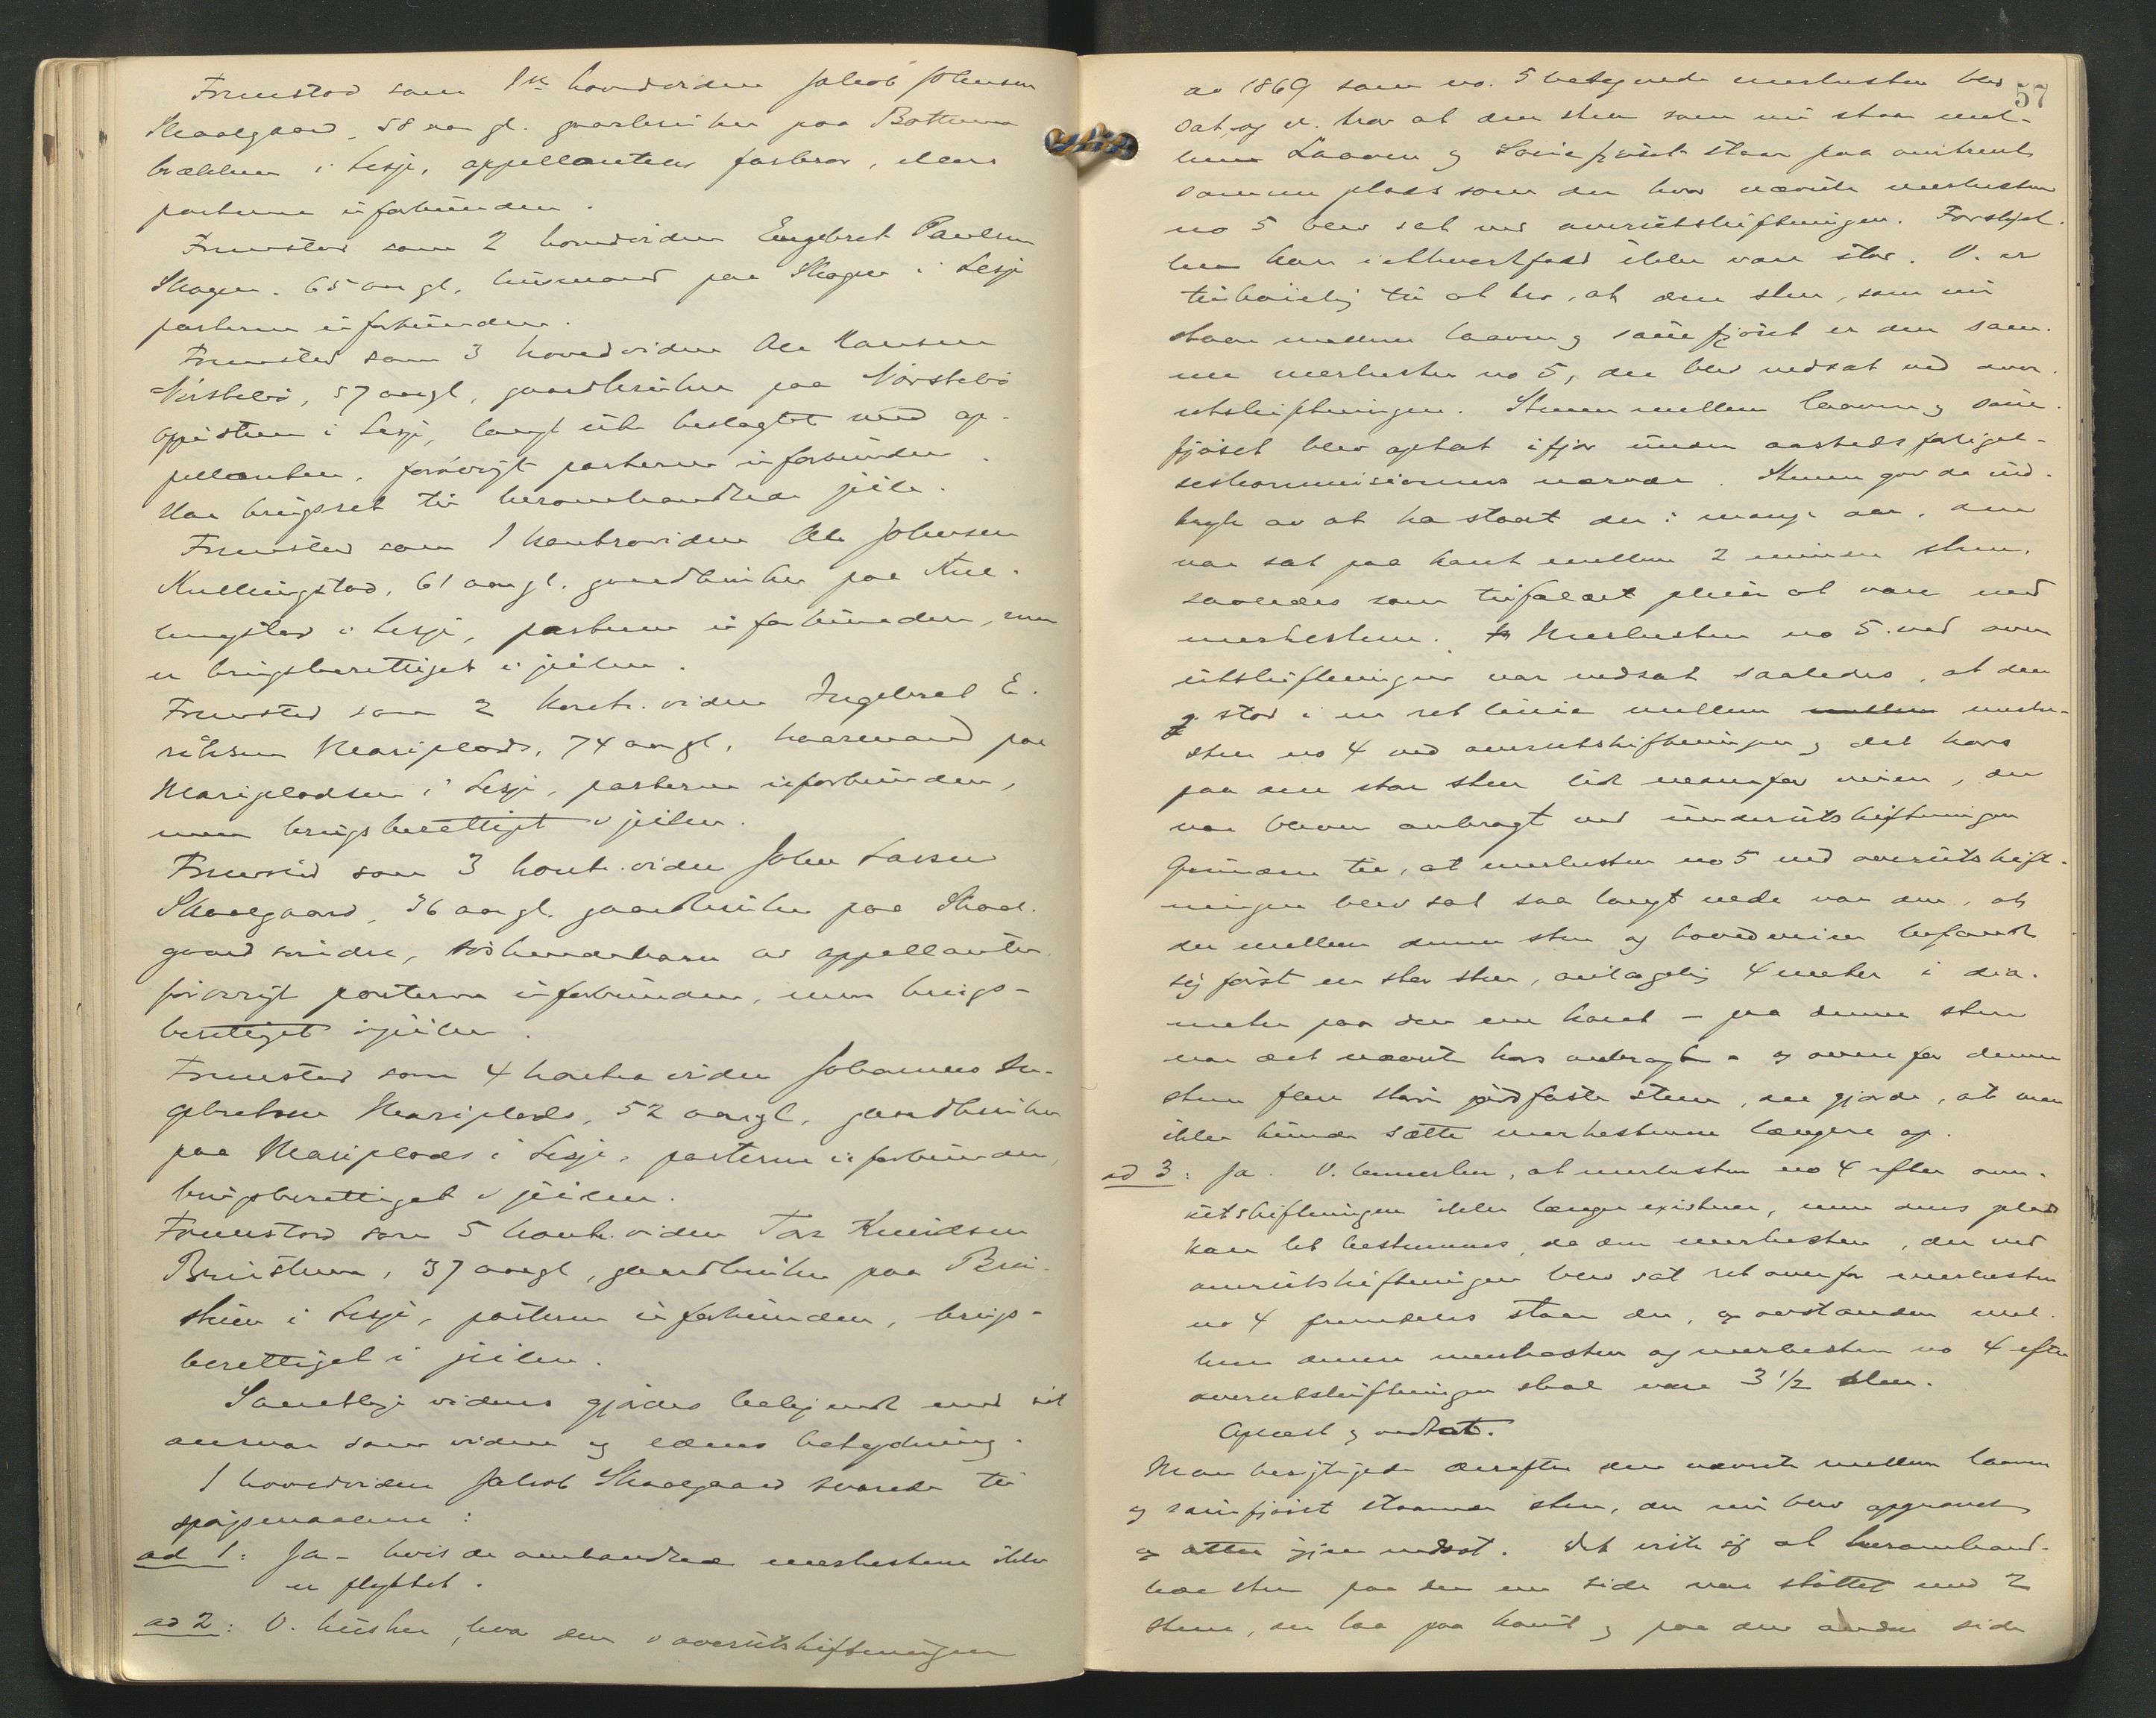 Fremstod som 1ste hovedvidne Jakob Johnsen
Skaalgaard, 58 aar gl. gaardbruker paa Bottem
i Lesje, appellantens farbror, ellers
parterne uforbunden.
Fremstod som 2 hovedvidne Engebret Paulsen
Skogen. 65 aar gl, husmand paa Skogen i Lesje
parterne uforbunden.
Fremstod som 3 hovedvidne Ole Hansen
Nörstebö, 57 aar gl, gaardbruker paa Nörstebö
i Lesje, langt ute beslagtet med ap-
pellanten, forövrigt parterne uforbunden.
Har bruksret til heromhandlede jeile.
Fremstod som 1 kontravidne Ole Johnsen
Kullingstad, 61 aar gl. gaardbruker paa Kul-
lingstad i Lesje, parterne uforbunden, men
er bruksberettiget i jeilen.
Fremstod som 2 kontr. vidne Ingebret E-
riksen Mariplads, 74 aar gl, kaarmand paa
Mariplassen i Lesje, parterne uforbunden,
men bruksberettiget i jeilen.
Fremstod som 3 kontr. vidne John Larsen
Skaalgaard, 36 aar gl. gaardbruker paa Skaal-
gaard söndre, söskendebarn av appellanten
forövrigt parterne uforbunden, men bruks-
berettiget i jeilen.
Fremstod som 4 kontra vidne Johannes In-
gebretsen Mariplads, 52 aar gl, gaardbruker
paa Mariplads i Lesje, parterne uforbunden,
bruksberettiget i jeilen.
Fremstod som 5 kontr. vidne Tor Knudsen
37 aar gl, gaardbruker paa
i Lesje, parterne uforbunden, bruks-
berettiget i jeilen.
Samtlige vidner gjordes bekjendt med sit
ansvar som vidne og edens betydning.
1 hovedvidne Jakob Skaalgaard svarede til
spörgsmaalene:
ad 1: Ja - hvis de omhandlede merkestene ikke
er flyttet.
ad 2: V. husker, hvor den i overutskiftningen
57
av 1869 som no. 5 betegnede merkesten blev
sat, og v. tror at den sten som nu staar mel-
lem Laaven og Sauefjöset staar paa omtrent
samme plads som der hvor nævnte merkesten
no 5 blev sat ved overutskiftningen. Forskjel-
len kan i ethvertfald ikke være stor. V. er
tilböielig til at tro, at den sten, som nu
staar mellem laaven og sauefjöset er den sam-
me merkesten no 5, der blev nedsat ved over-
utskiftningen. Stenen mellem laaven og saue-
fjöset blev optat ifjor under aastedsforligel-
seskommisionens nærvær. Stenen gav da ind-
tryk av at ha staat der i mange aar, den
var sat paa kant mellem 2 mindre stene,
saaledes som tilfældet pleier at være med
merkestene. Merkesten no 5 ved over
utskiftningen var nedsat saaledes, at den
stod i en ret linie mellem merke-
sten no 4 ved overutskiftningen og det kors
paa den store sten litt nedenfor veien, der
var bleven anbragt ved underutskiftningen
Grunden til, at merkesten no 5 ved overutskift-
ningen blev sat saa langt nede var den, at
der mellem denne sten og hovedveien befandt
sig först en stor sten, antagelig 4 meter i dia-
meter paa den ene kant - paa denne sten
var det nævnte kors anbragt - og ovenfor denne
sten flere store jordfaste stene, der gjorde, at man
ikke kunde sætte merkestenene længere op.
ad 3: Ja. V. bemerker, at merkesten no 4 efter over-
utskiftningen ikke længer existerer, men dens plads
kan let bestemmes, da den merkesten, der ved
overutskiftningen blev sat ret ovenfor merkesten
no 4 fremdeles staar der, og avstanden mel-
lem denne merkesten og merkesten no 4 efter
overutskiftningen skal være 3 1/2 alen.
Oplæst og vedtat.
Man besigtigede derefter den nævnte mellem laaven
og sauefjöset staaende sten, der nu blev opgravet
og atter igjen nedsat. Det viste sig at heromhand-
lede sten paa den ene side var stöttet med 2
stene, der laa paa kant og paa den anden side